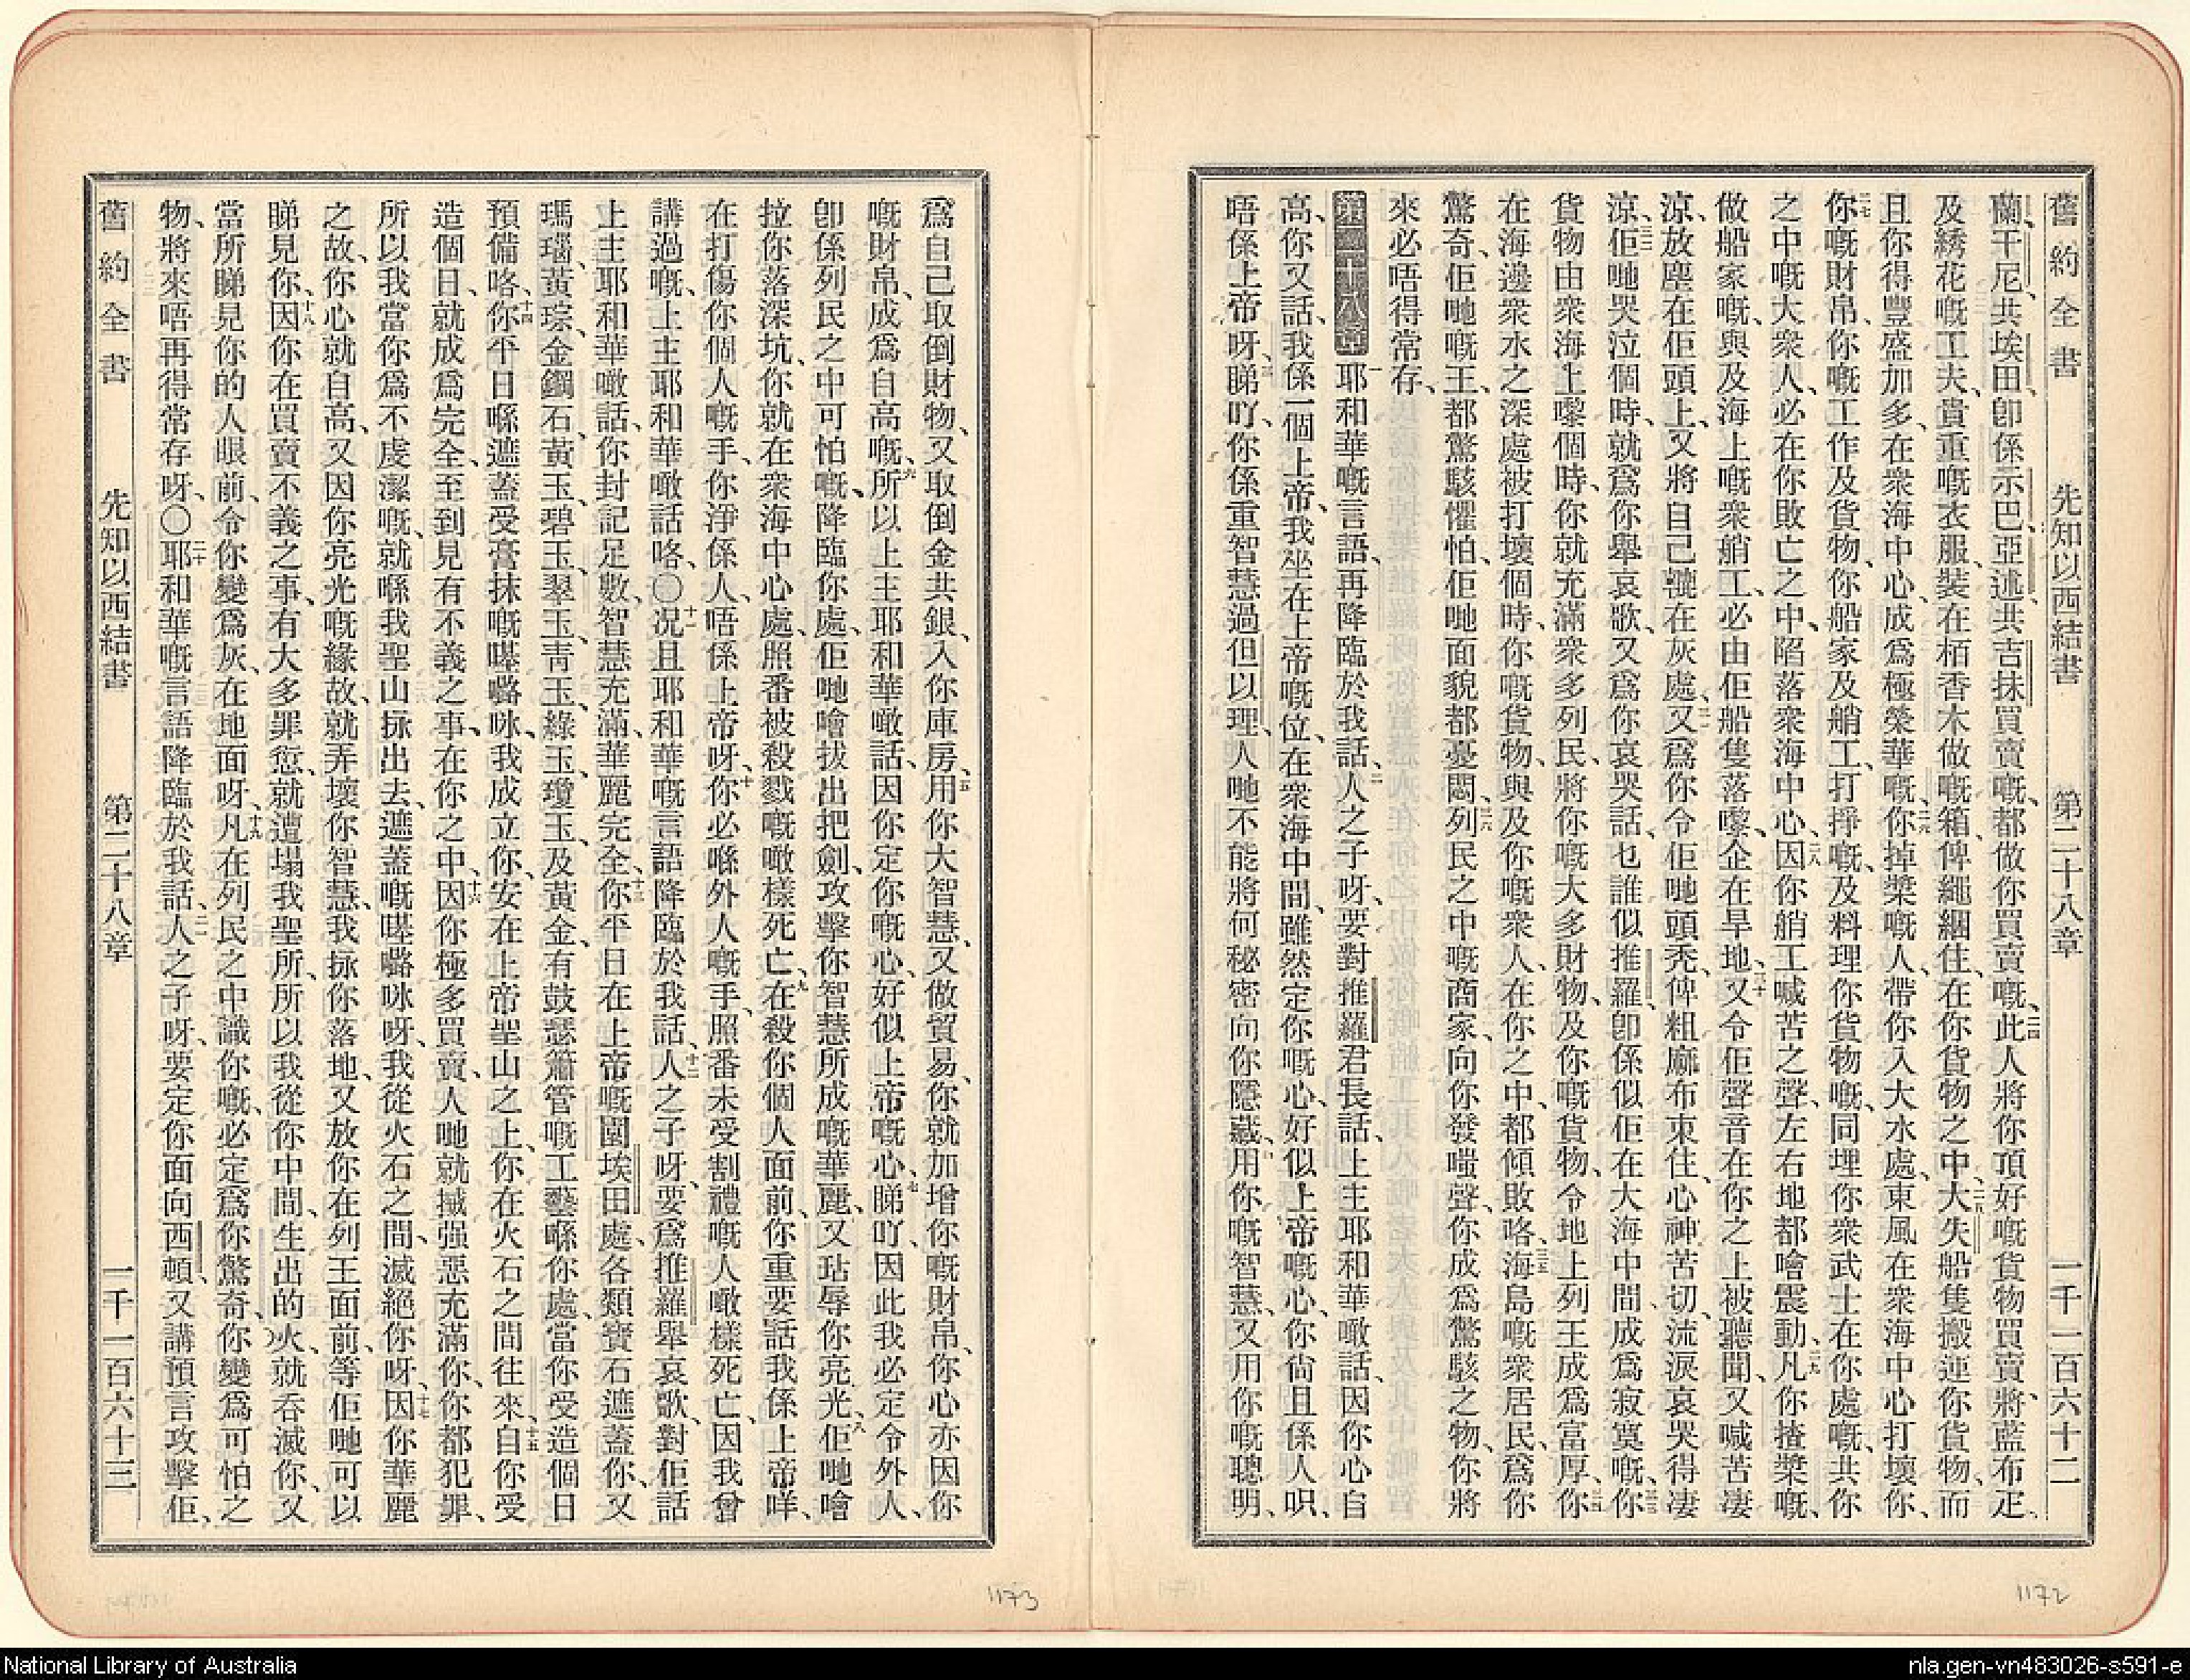 舊約全書 先知以西結書 第二十八章 一千一百六十二
蘭、干尼、共埃田、卽係示巴、亞述、共吉抹買賣嘅、都做你買賣嘅、二四此人將你頂好嘅貨物買賣、將藍布疋、
及綉花嘅工夫、貴重嘅衣服、裝在栢香木做嘅箱、俾繩綑住、在你貨物之中、二五大失船隻搬運你貨物、而
且你得豐盛加多、在衆海中心、成爲極榮華嘅、二六你掉槳嘅人、帶你入大水處、東風在衆海中心打壞你、
二七你嘅財帛、你嘅工作及貨物、你船家及艄工、打掙嘅、及料理你貨物嘅、同埋你衆武士在你處嘅、共你
之中嘅大衆人、必在你敗亡之中、陷落衆海中心、二八因你艄工喊苦之聲、左右地都噲震動、二九凡你揸槳嘅、
做船家嘅、與及海上嘅衆艄工、必由佢船隻落嚟、企在旱地、三十又令佢聲音在你之上被聽聞、又喊苦凄
涼、放塵在佢頭上、又將自己轆在灰處、三一又爲你令佢哋頭禿、俾粗蔴布束住、心神苦切、流淚哀哭得凄
涼、三二佢哋哭泣個時、就爲你舉哀歌、又爲你哀哭話、乜誰似推羅、卽係似佢在大海中間、成爲寂寞嘅、三三你
貨物由衆海上嚟個時、你就充滿衆多列民、將你嘅大多財物、及你嘅貨物、令地上列王成爲富厚、三四你
在海邊衆水之深處被打壞個時、你嘅貨物、與及你嘅衆人、在你之中都傾敗咯、三五海島嘅衆居民、爲你
驚奇、佢哋嘅王、都驚駭懼怕、佢哋面貌都憂悶、三六列民之中嘅商家、向你發嗤聲、你成爲驚駭之物、你將
來必唔得常存、
第二十八章 一耶和華嘅言語、再降臨於我話、二人之子呀、要對推羅君長話、上主耶和華噉話、因你心自
高、你又話、我係一個上帝、我坐在上帝嘅位、在衆海中間、雖然定你嘅心、好似上帝嘅心、你尙且係人呮、
唔係上帝呀、三睇吖、你係重智慧過但以理、人哋不能將何秘密向你隱藏、四用你嘅智慧、又用你嘅聰明、
爲自己取倒財物、又取倒金共銀、入你庫房、五用你大智慧、又做貿易、你就加增你嘅財帛、你心亦因你
嘅財帛、成爲自高嘅、六所以上主耶和華噉話、因你定你嘅心、好似上帝嘅心、七睇吖、因此我必定令外人、
卽係列民之中可怕嘅、降臨你處、佢哋噲拔出把劍、攻擊你智慧所成嘅華麗、又玷辱你亮光、八佢哋噲
拉你落深坑、你就在衆海中心處、照番被殺戮嘅噉樣死亡、九在殺你個人面前、你重要話我係上帝咩、
在打傷你個人嘅手、你淨係人、唔係上帝呀、十你必喺外人嘅手、照番未受割禮嘅人噉樣死亡、因我曾
講過嘅、上主耶和華噉話咯、〇十一况且耶和華嘅言語降臨於我話、十二人之子呀、要爲推羅舉哀歌、對佢話
上主耶和華噉話、你封記足數、智慧充滿、華麗完全、十三你平日在上帝嘅園埃田處、各類寶石遮蓋你、又
瑪瑙、黃琮、金鋼石、黃玉、碧玉、翠玉、靑玉、綠玉、瓊玉、及黃金、有鼓瑟簫管嘅工藝喺你處、當你受造個日
預備咯、十四你平日喺遮蓋受膏抹嘅㗲嚕咏、我成立你、安在上帝聖山之上、你在火石之間往來、十五自你受
造個日、就成爲完全、至到見有不義之事、在你之中、十六因你極多買賣、人哋就摵强惡充滿你、你都犯罪、
所以我當你爲不虔潔嘅、就喺我聖山捒出去、遮蓋嘅㗲嚕咏呀、我從火石之間、滅絕你呀、十七因你華麗
之故、你心就自高、又因你亮光嘅緣故、就弄壞你智慧、我捒你落地、又放你在列王面前、等佢哋可以
睇見你、十八因你在買賣不義之事、有大多罪愆、就遭塌我聖所、所以我從你中間、生出的火、就吞滅你、又
當所睇見你的人眼前、令你變爲灰、在地面呀、十九凡在列民之中識你嘅、必定爲你驚奇、你變爲可怕之
物、將來唔再得常存呀、〇二十耶和華嘅言語降臨於我話、二一人之子呀、要定你面向西頓、又講預言攻擊佢、
舊約全書 先知以西結書 第二十八章 一千一百六十三
1173
1172
National Library of Australia
nla.gen-vn483026-s591-e